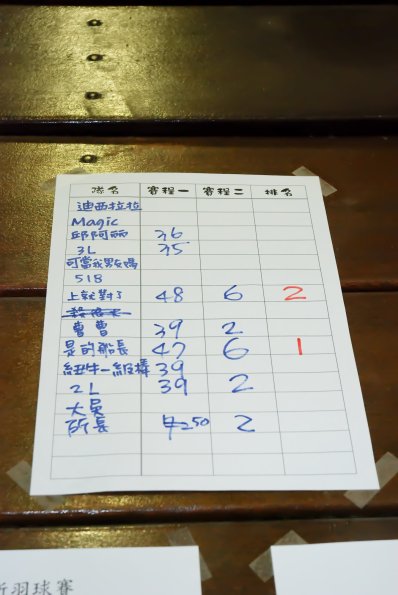 隊名 賽程一 賽程二 排名
迪西拉拉
Magic
邱阿丽 36
3L 35
518
上就對了 48 6 2
曹曹 39 2
是的船長 47 6 1
紐牛一級棒 39
2L 39 2
大員
所長 50 2
新羽球賽